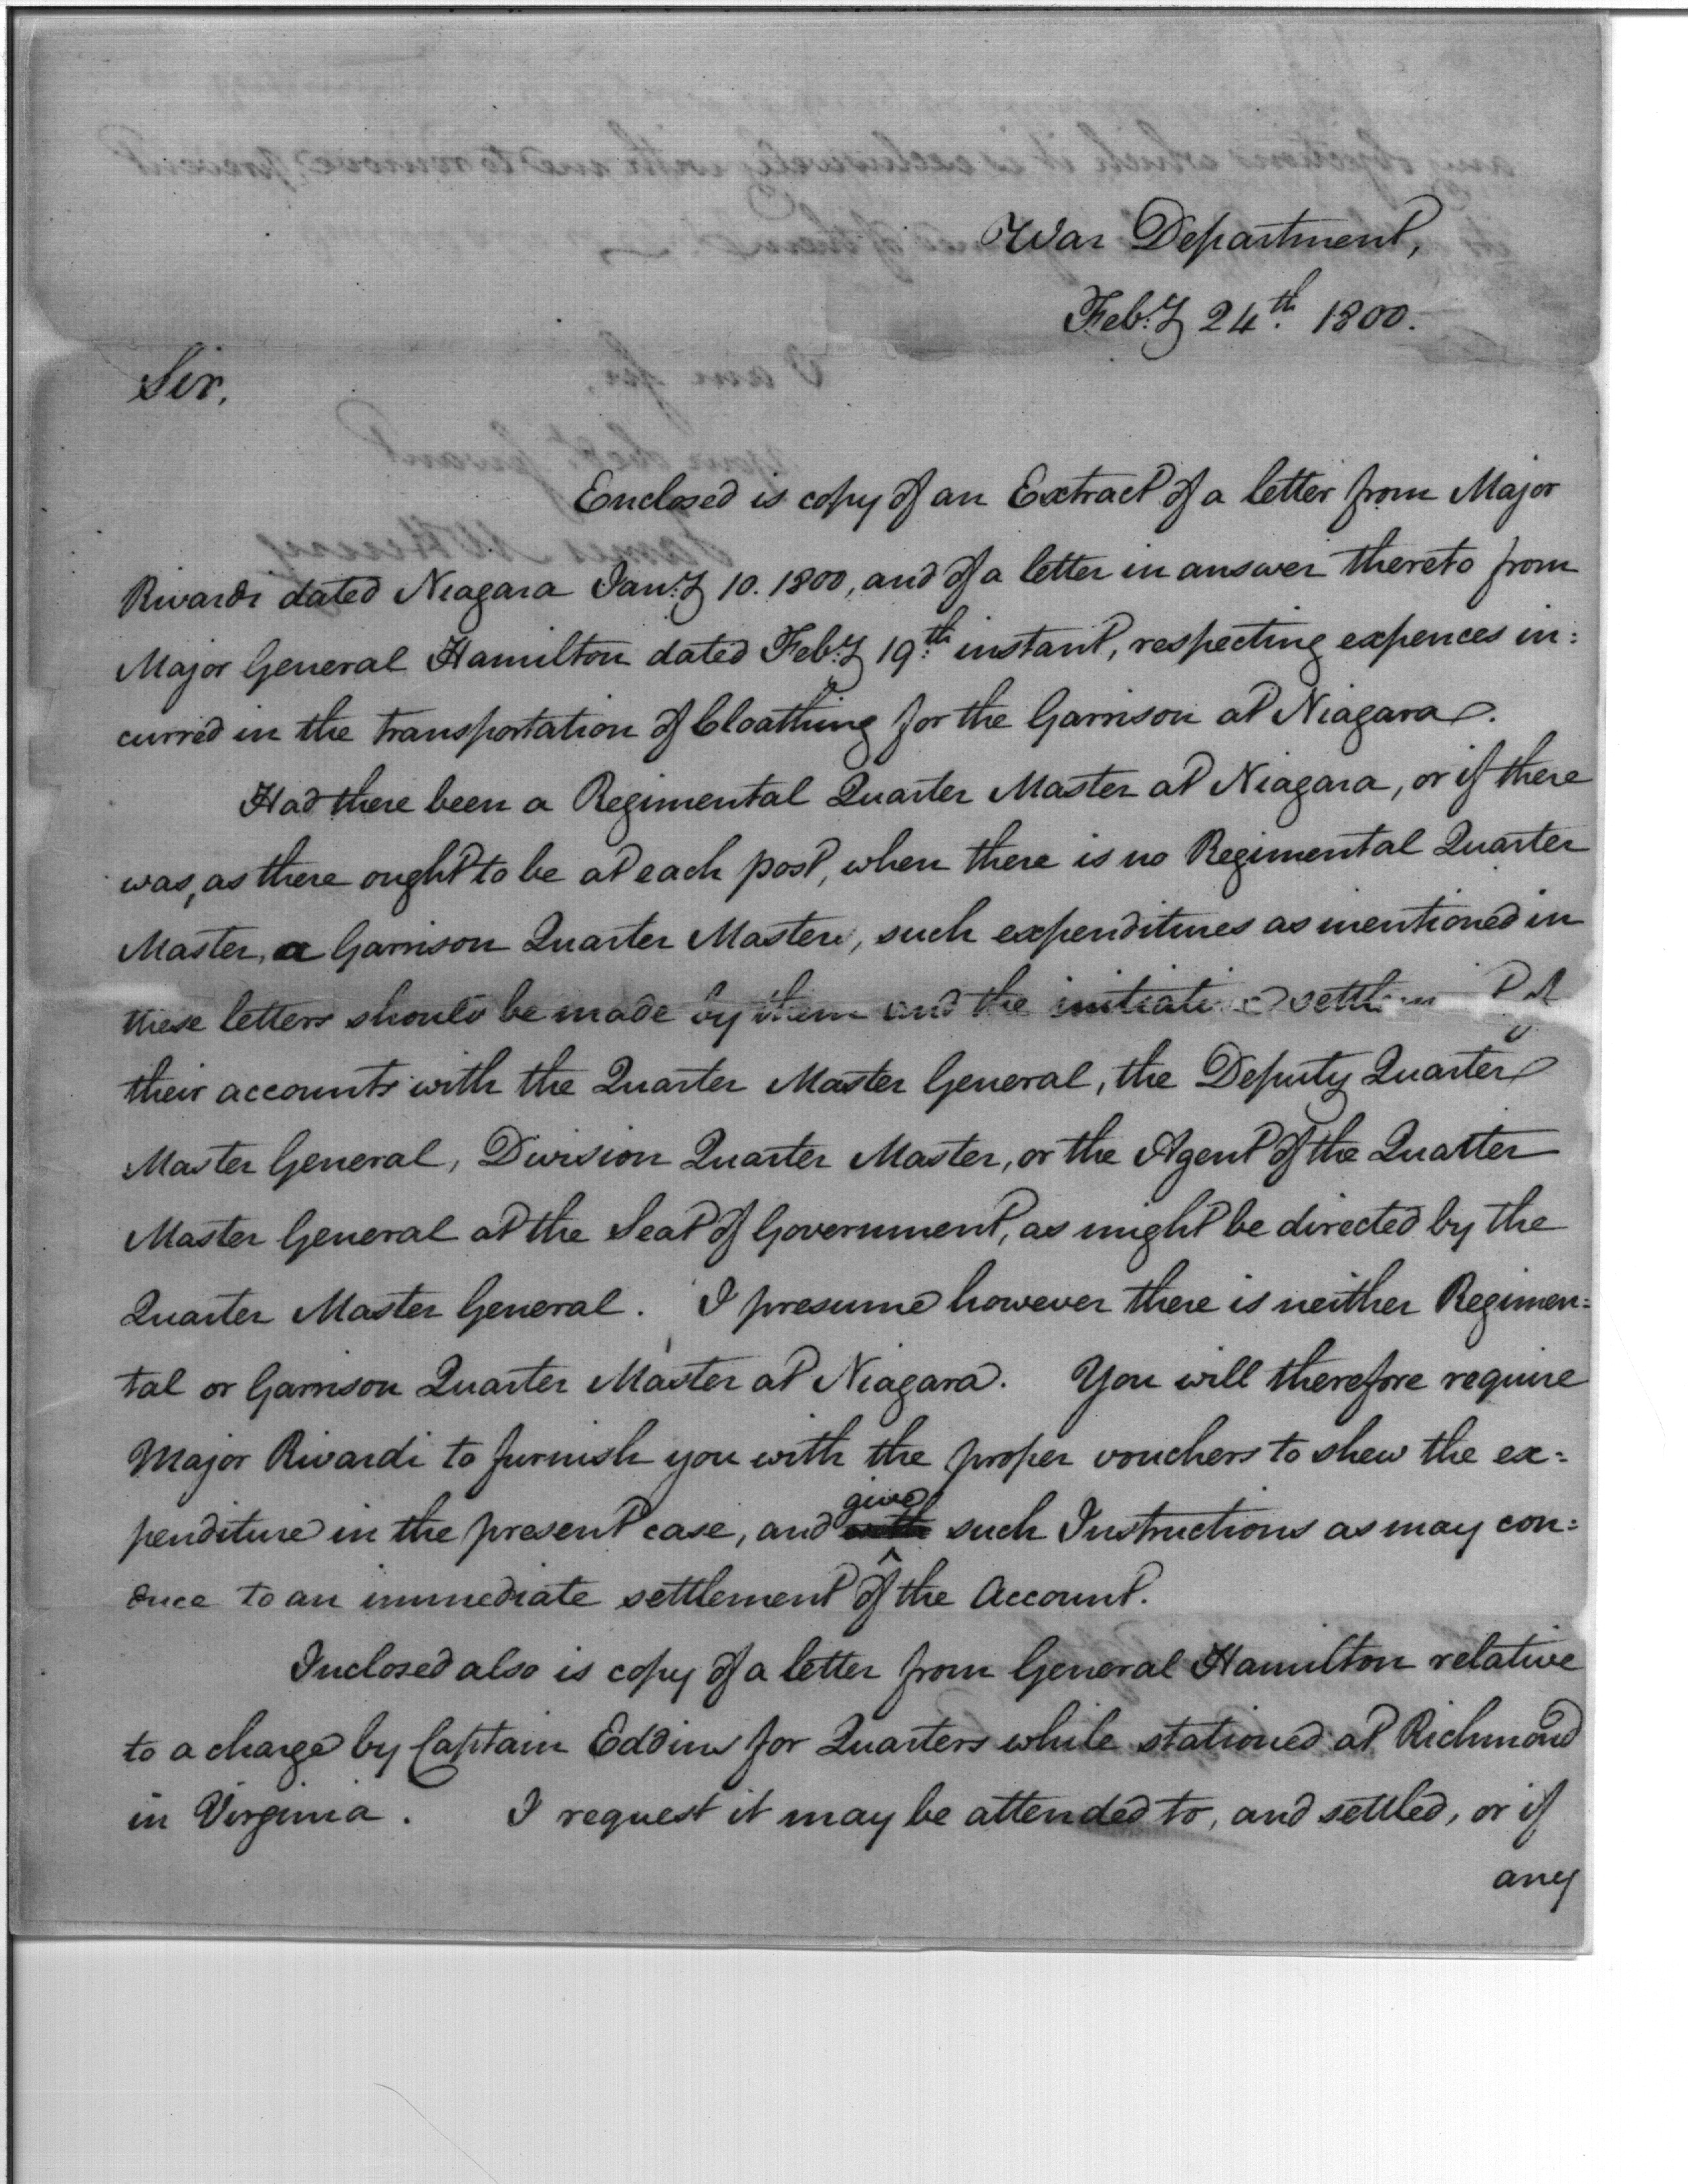 War Department,
Feb:y 24th. 1800.
Sir,
Enclosed is copy of an Extract of a letter from Major
Rivardi dated Niagara Jan:y 10. 1800, and of a letter in answer thereto from
Major General Hamilton dated Feb:y 19th. instant, respecting expences in=
curred in the transportation of Cloathing for the Garrison at Niagara.
Had there been a Regimental Quarter Master at Niagara, or if there
was, as there ought to be at each post, when there is no Regimental Quarter
Master, a Garrison Quarter Master, such expenditures as mentioned in
these letters should be made by them and the
their accounts with the Quarter Master General, the Deputy Quarter
Master General, Division Quarter Master, or the Agent of the Quarter
Master General at the Seat of Government, as might be directed by the
Quarter Master General. I presume however there is neither Regimen=
tal or Garrison Quarter Master at Niagara. You will therefore require
Major Rivardi to furnish you with the proper vouchers to shew the ex=
penditure in the present case, and give such Instructions as may con=
duce to an immediate settlement of the Account.
Inclosed also is copy of a letter from General Hamilton relative
to a charge by Captain Eddins for Quarters while stationed at Richmond
in Virginia. I request it may be attended to, and settled, or if
any